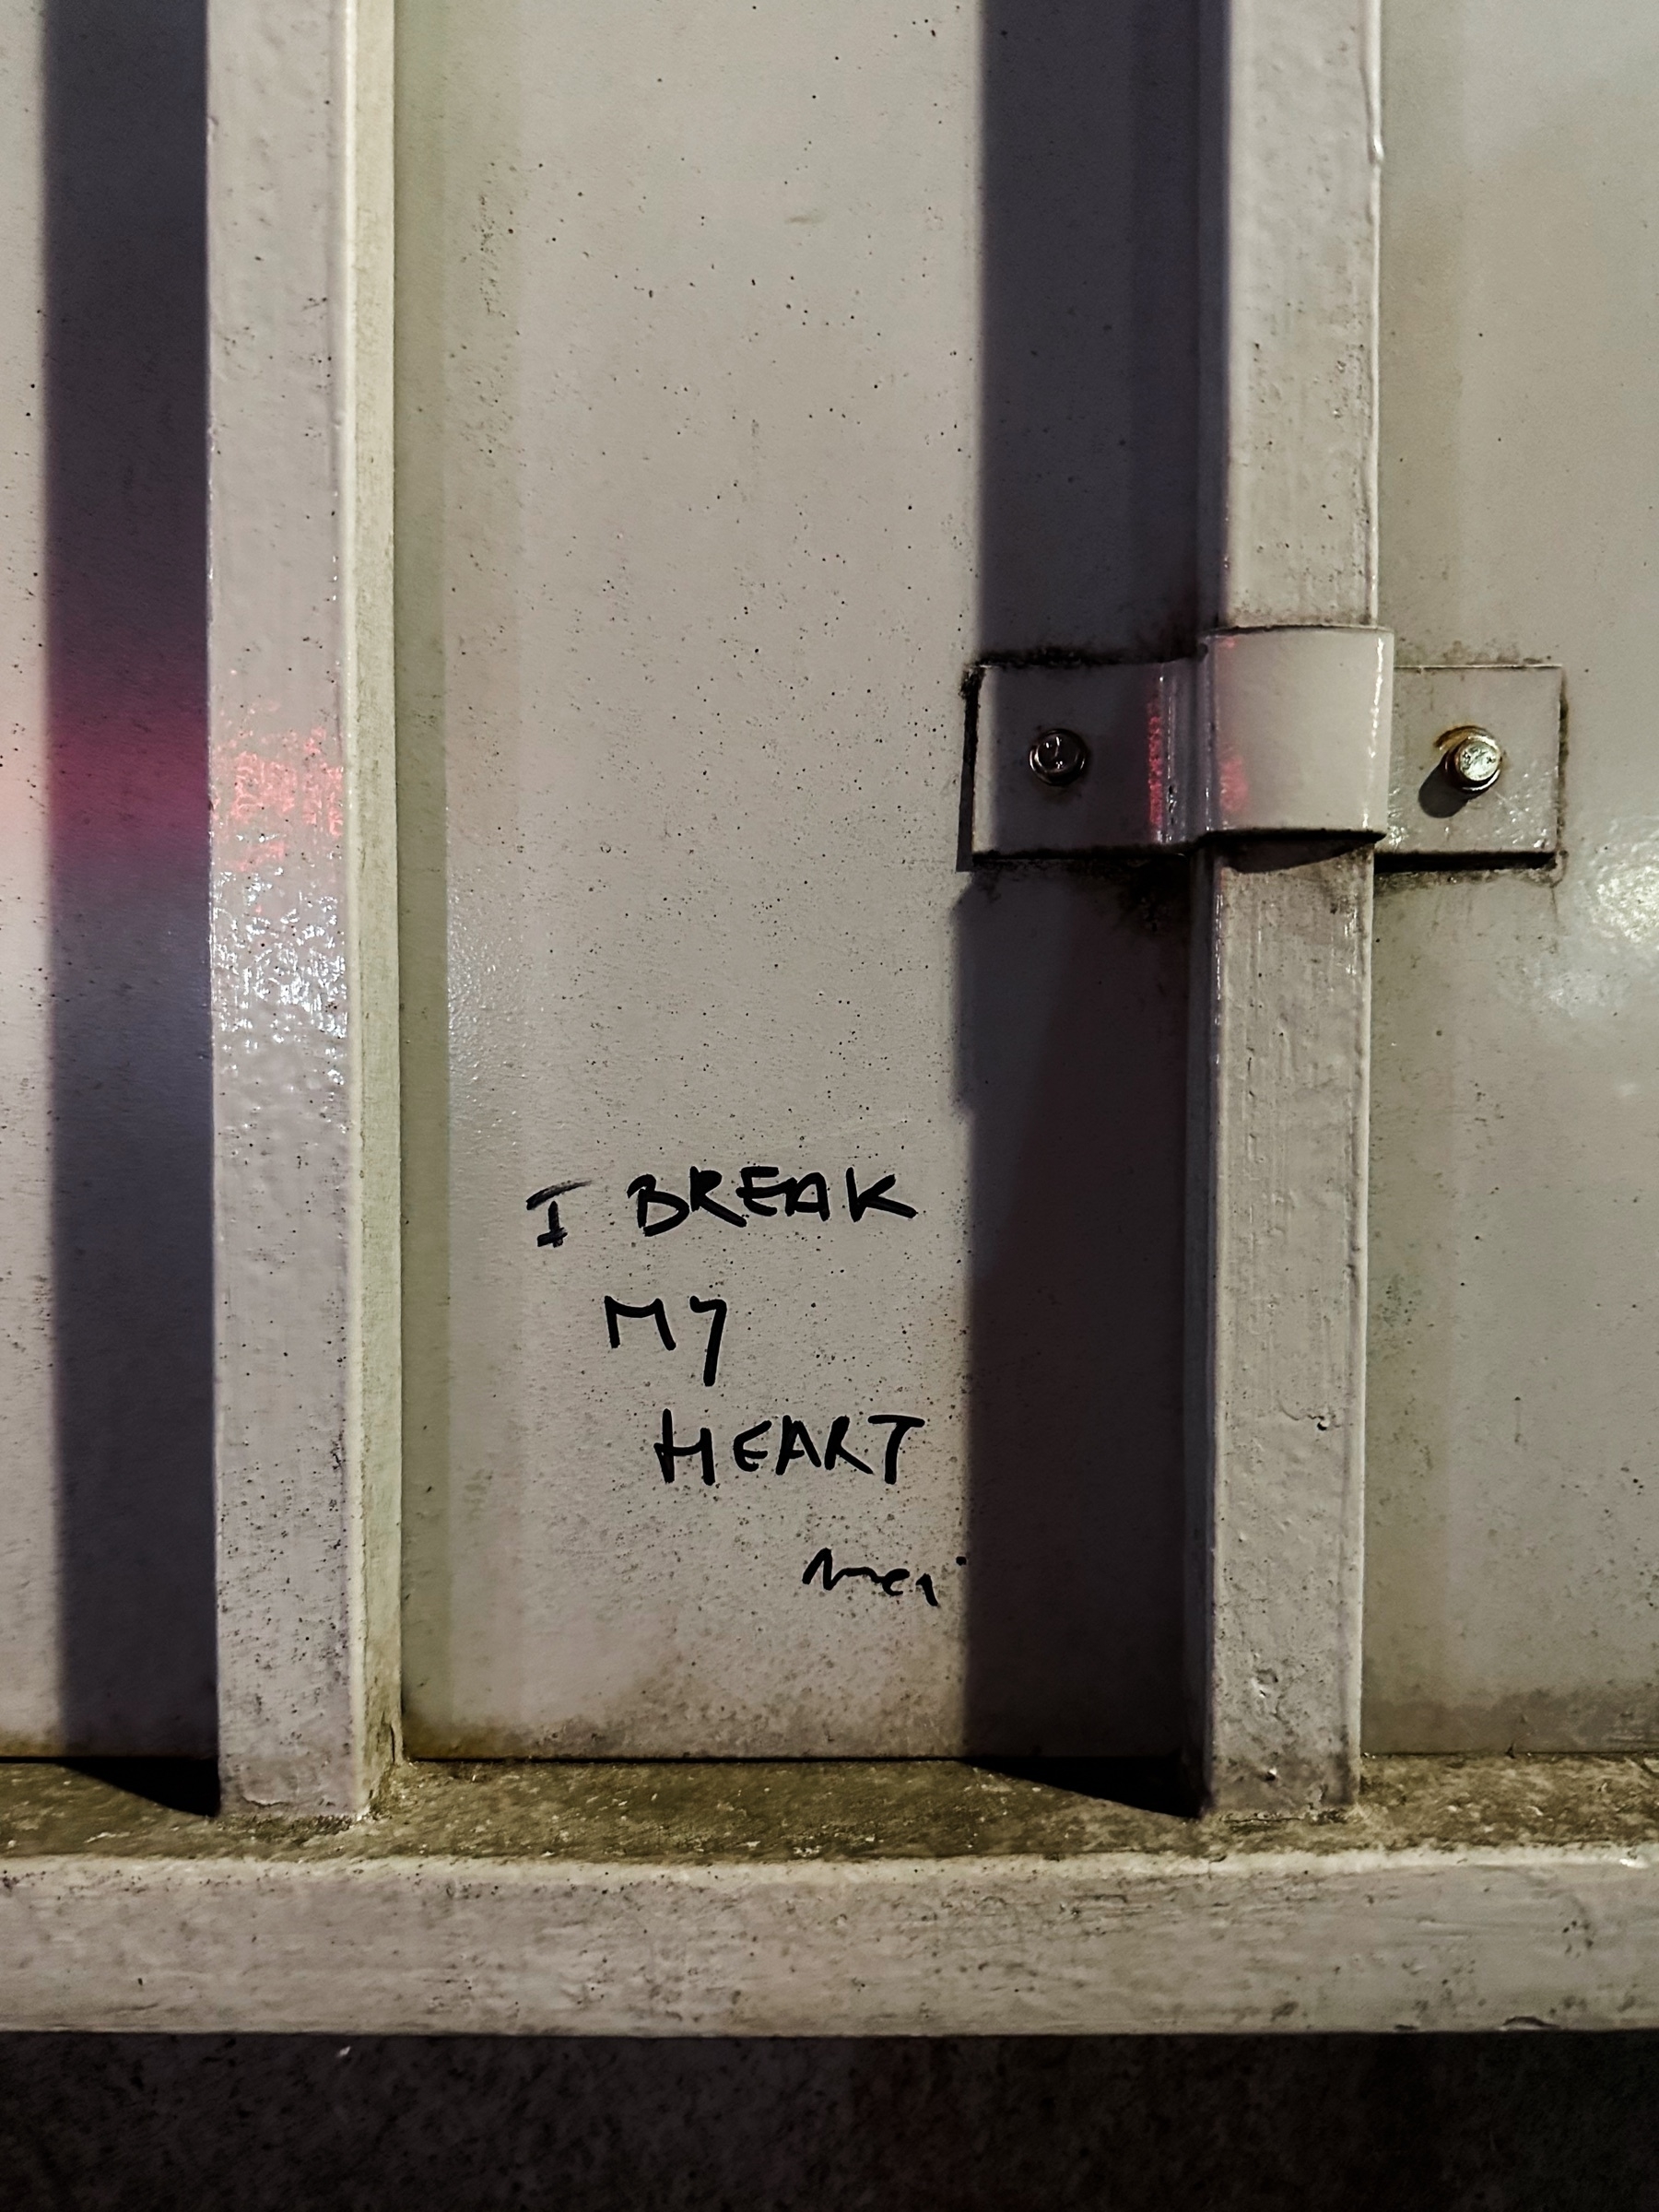 I BREAK
MY
HEART
mei